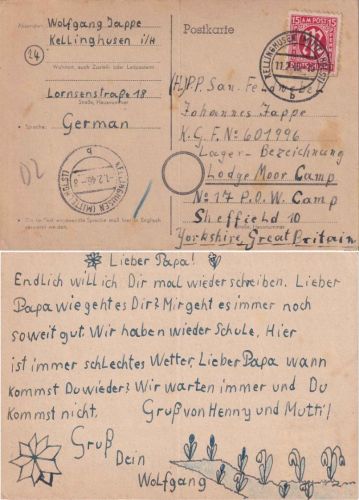 Absender: Wolfgang Jappe
Kellinghusen i/H
24
Wohnort, auch Zustell- oder Leitpostamt
Lornsenstraße 18
Straße, Hausnummer
Sprache:
German
Postkarte
15 AM POST 15
KELLINGHUSEN (MITTELHOLST)
b
KELLINGHUSEN (MITTELHOLST)
b
D2
San.
Johannes Jappe
K.G.F. No 601996
Lager-Bezeichnung
Lodge Moor Camp
No 17 P.O.W. Camp
Sheffield 10
Yorkshire, Great Britain
Lieber Papa!
Endlich will ich Dir mal wieder schreiben. Lieber
Papa wie geht es Dir? Mir geht es immer noch
soweit gut. Wir haben wieder Schule. Hier
ist immer schlechtes Wetter. Lieber Papa wann
kommst Du wieder? Wir warten immer und Du
kommst nicht. Gruß von Henny und Mutti!
Gruß
Dein
Wolfgang